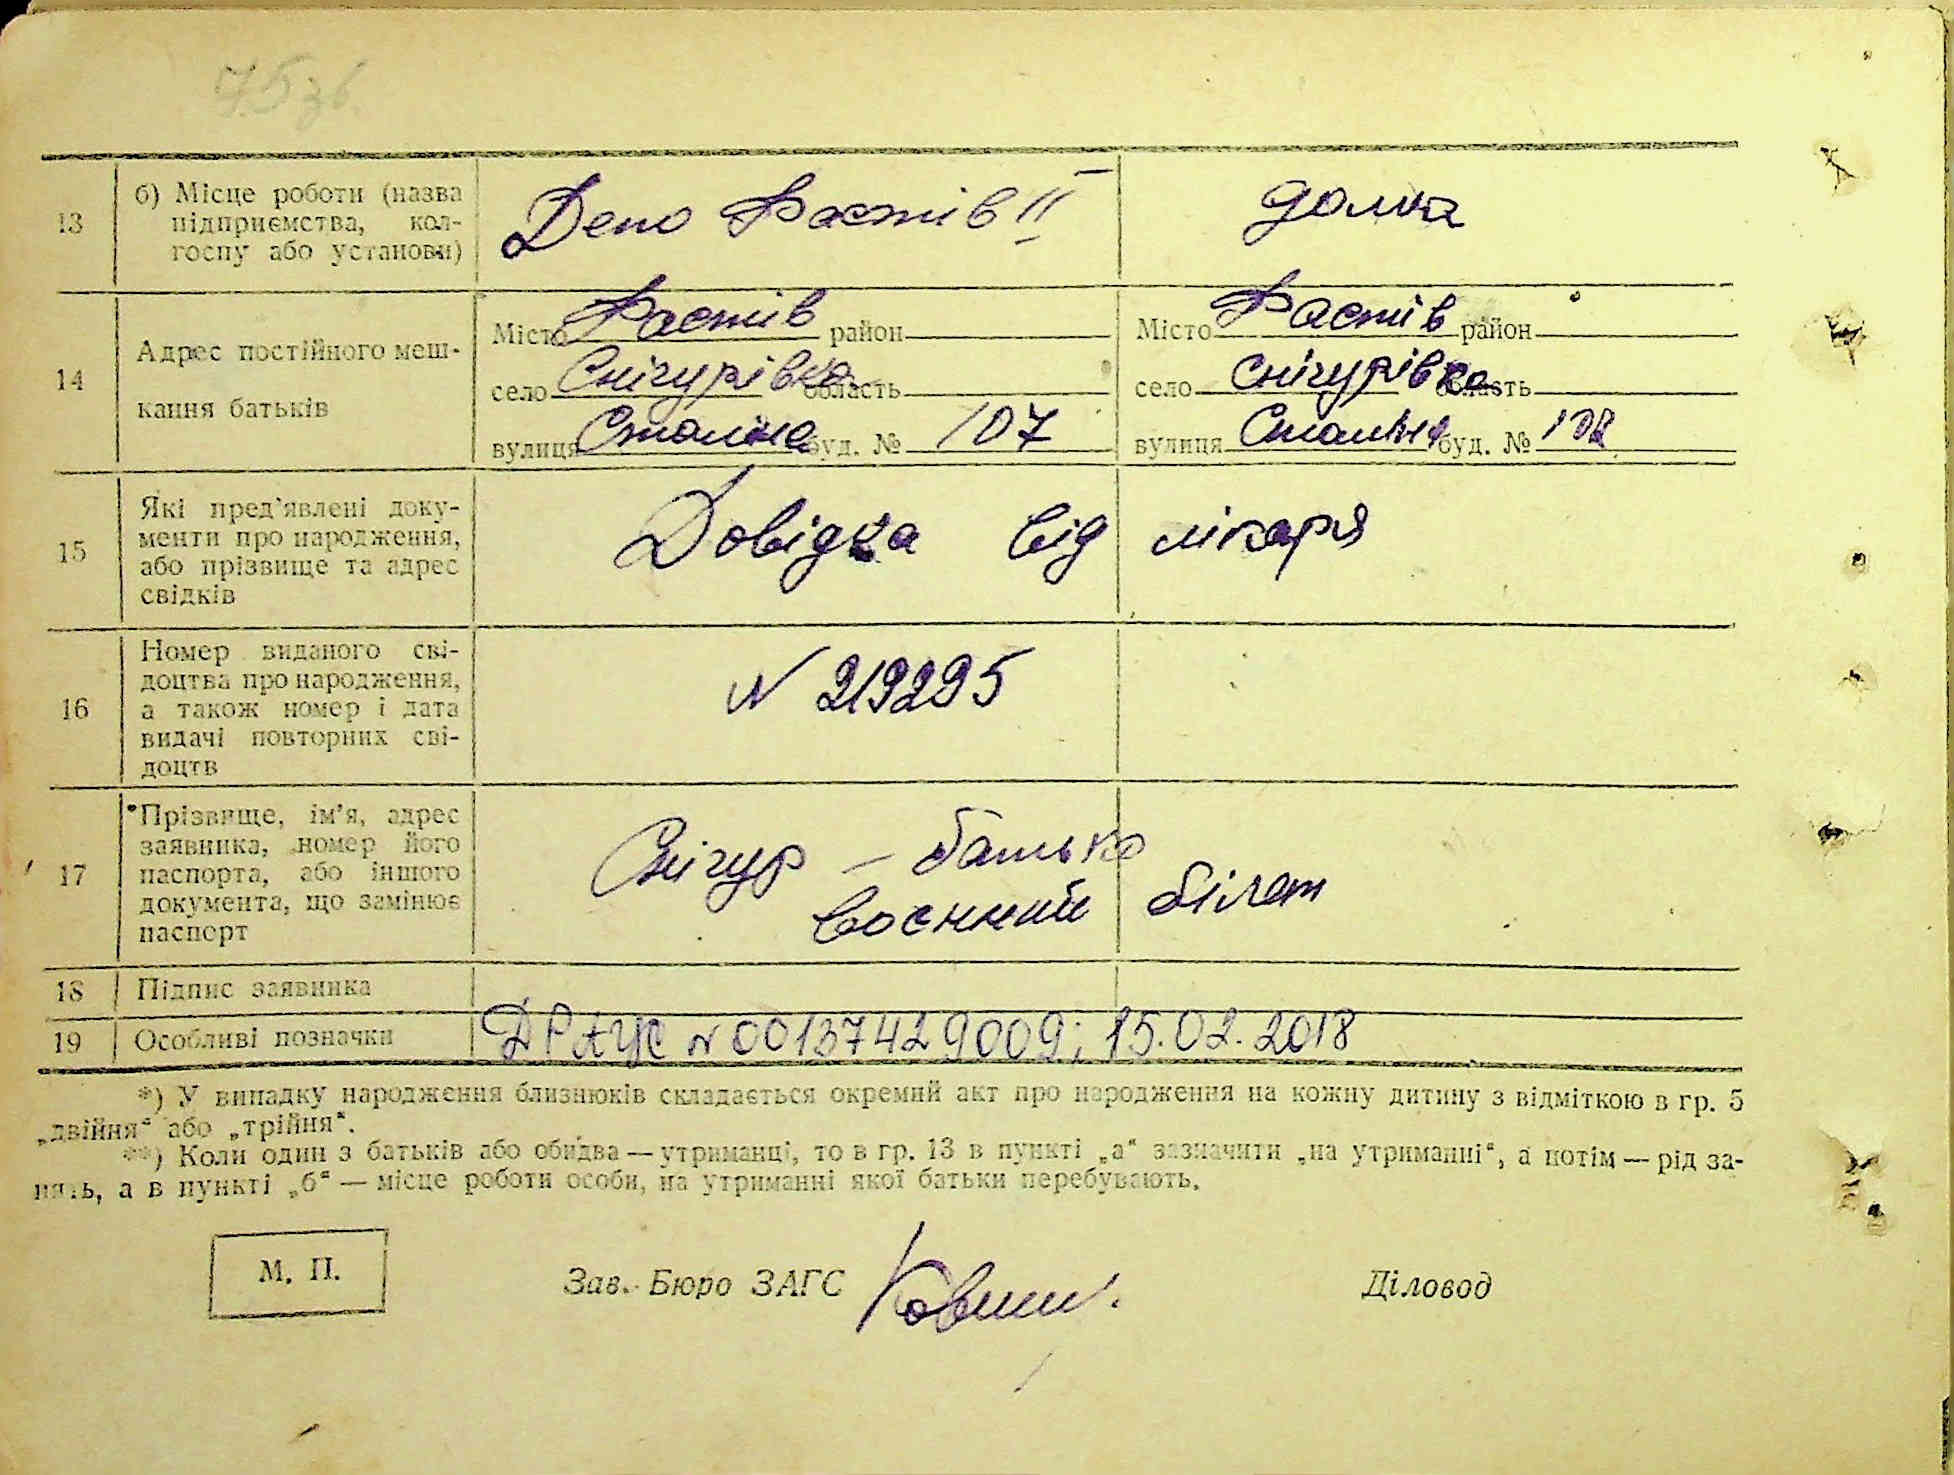 75 зв.
13
б) Місце роботи (назва
підприємства, кол-
госпу або установи)
Депо Фастів II
дома
14
Адрес постійного меш-
кання батьків
Місто Фастів район
село Снігурівка область
вулиця Сталіна буд. № 107
Місто Фастів район
село Снігурівка область
вулиця Сталіна буд. № 108
15
Які пред'явлені доку-
менти про народження,
або прізвище та адрес
свідків
Довідка від лікаря
16
Номер виданого сві-
доцтва про народження,
а також номер і дата
видачі повторних сві-
доцтв
N 219295
17
Прізвище, ім'я, адрес
заявника, номер його
паспорта, або іншого
документа, що замінює
паспорт
Снігур – батько
воєнний білет
18
Підпис заявника
19
Особливі позначки
ДРАЦС N 00137429009; 15.02.2018
*) У випадку народження близнюків складається окремий акт про народження на кожну дитину з відміткою в гр. 5
„двійня“ або „трійня“.
**) Коли один з батьків або обидва — утриманці, то в гр. 13 в пункті „а“ зазначити „на утриманні“, а потім — рід за-
нять, а в пункті „б“ — місце роботи особи, на утриманні якої батьки перебувають.
М. П.
Зав. Бюро ЗАГС
Діловод